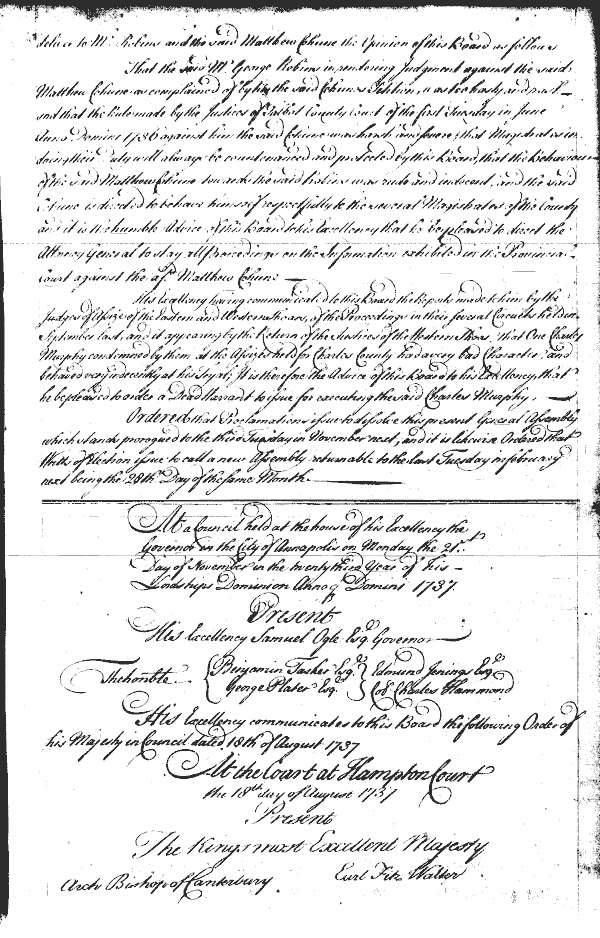 deliver to Mr. Robins and the said Matthew Cohune the Opinion of this Board as follows
That the said Mr. George Robins in rendering Judgment against the said
Matthew Cohune as complained of by him the said Cohunes Petition, was
and that the Rule made by the Justices of Talbot County Court of the first Tuesday in June
Anno Domini 1736 against him the said Cohune was harsh and severe; that Magistrates in
doing their Duty will always be countenanced and protected by this Board, that the Behaviour
of the said Matthew Cohune towards the said Robins was rude and indecent, and the said
Cohune is directed to behave himself respectfully to the several Magistrates of the County
and it is the humble Advice of this Board to his Excellency that he be pleased to direct the
Attorney General to stay all Proceedings on the Information exhibited in the Provincial
Court against the afd. Matthew Cohune
His Excellency having communicated to this Board the Reports made to him by the
Judges of Assize of the Eastern and Western Shores, of the Proceedings in their several Circuits held in
September last, and it appearing by the Return of the Justices of the Western Shore, that One Charles
Murphy condemned by them at the Assizes held for Charles County had a very bad Character, and
behaved very indecently at his Tryal; It is therefore the Advice of this Board to his Excellency, that
he be pleased to order a Dead Warrant to issue for executing the said Charles Murphy.
Ordered that Proclamations issue to dissolve this present General Assembly
which stands prorogued to the third Tuesday in November next, and it is likewise Ordered that
Writts of Election issue to call a new Assembly returnable to the last Tuesday in february
next being the 28th Day of the same Month.
At a Council held at the house of his Excellency the
Governor in the City of Annapolis on Monday the 21st.
Day of November in the twenty third Year of his
Lordships Dominion Annoq Domini 1737.
Present
His Excellency Samuel Ogle Esqr. Governor
The honble { Benjamin Tasker Esqr. } Edmund Jenings Esqr.
George Plater Esqr. } Col. Charles Hammond
His Excellency communicates to this Board the following Order of
his Majesty in Council dated 18th of August 1737
At the Court at Hampton Court
the 18th day of August 1737
Present
The Kings most Excellent Majesty
Arch Bishop of Canterbury Earl Fitz Walter